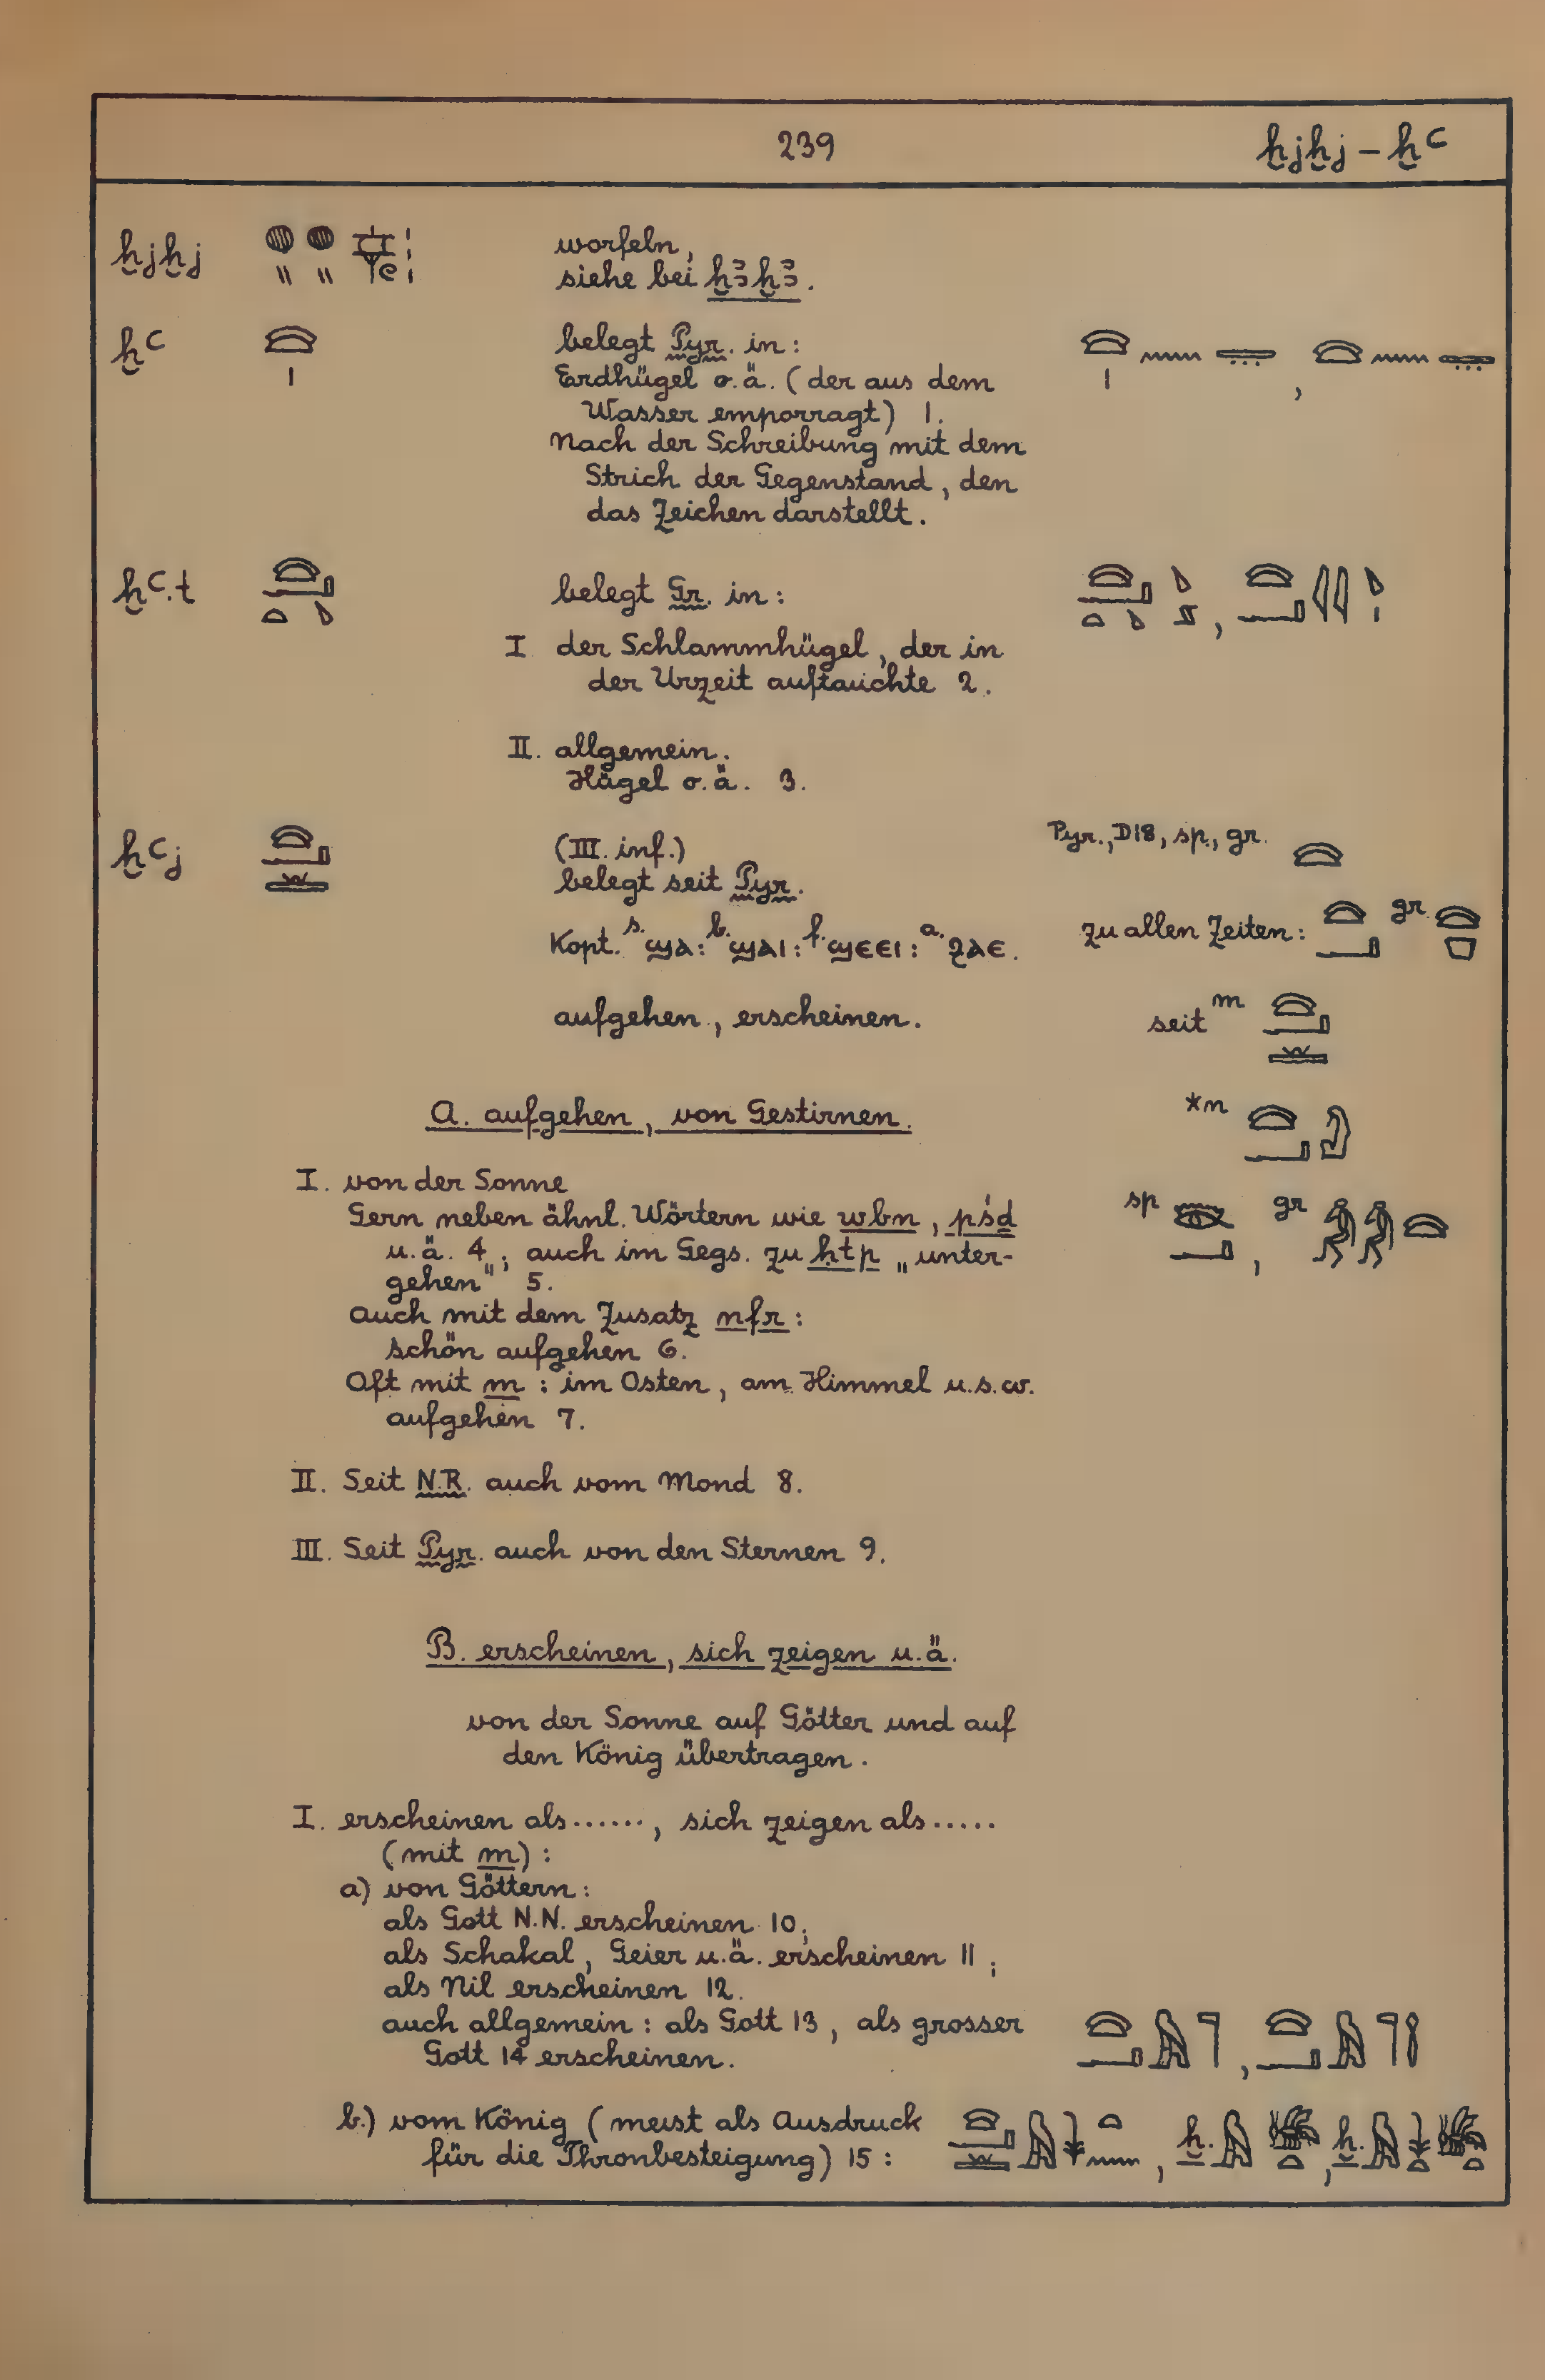 239
ḫjḫj – ḫꜥ
ḫjḫj
worfeln,
siehe bei ḫꜣḫꜣ.
ḫꜥ
belegt Pyr. in:
Erdhügel o.ä. (der aus dem
Wasser emporragt) 1.
Nach der Schreibung mit dem
Strich der Gegenstand, den
das Zeichen darstellt.
ḫꜥ.t
belegt Gr. in:
I der Schlammhügel, der in
der Urzeit auftauchte 2.
II. allgemein.
Hügel o.ä. 3.
ḫꜥj
(III. inf.)
belegt seit Pyr.
Kopt. s. ϣⲁ: b. ϣⲁⲓ: f. ϣⲉⲉⲓ: a. ϩⲁⲉ.
aufgehen, erscheinen.
Pyr., D18, sp., gr.
zu allen Zeiten: gr.
seit m
*m
sp , gr
A. aufgehen, von Gestirnen.
I. von der Sonne
Gern neben ähnl. Wörtern wie wbn, pśd
u.ä. 4; auch im Gegs. zu ḥtp „unter-
gehen" 5.
auch mit dem Zusatz nfr:
schön aufgehen 6.
Oft mit m : im Osten, am Himmel u.s.w.
aufgehen 7.
II. Seit N.R. auch vom Mond 8.
III. Seit Pyr. auch von den Sternen 9.
B. erscheinen, sich zeigen u.ä.
von der Sonne auf Götter und auf
den König übertragen.
I. erscheinen als......, sich zeigen als.....
(mit m) :
a) von Göttern:
als Gott N.N. erscheinen 10;
als Schakal, Geier u.ä. erscheinen 11;
als Nil erscheinen 12.
auch allgemein : als Gott 13, als grosser
Gott 14 erscheinen.
b.) vom König (meist als Ausdruck
für die Thronbesteigung) 15 :